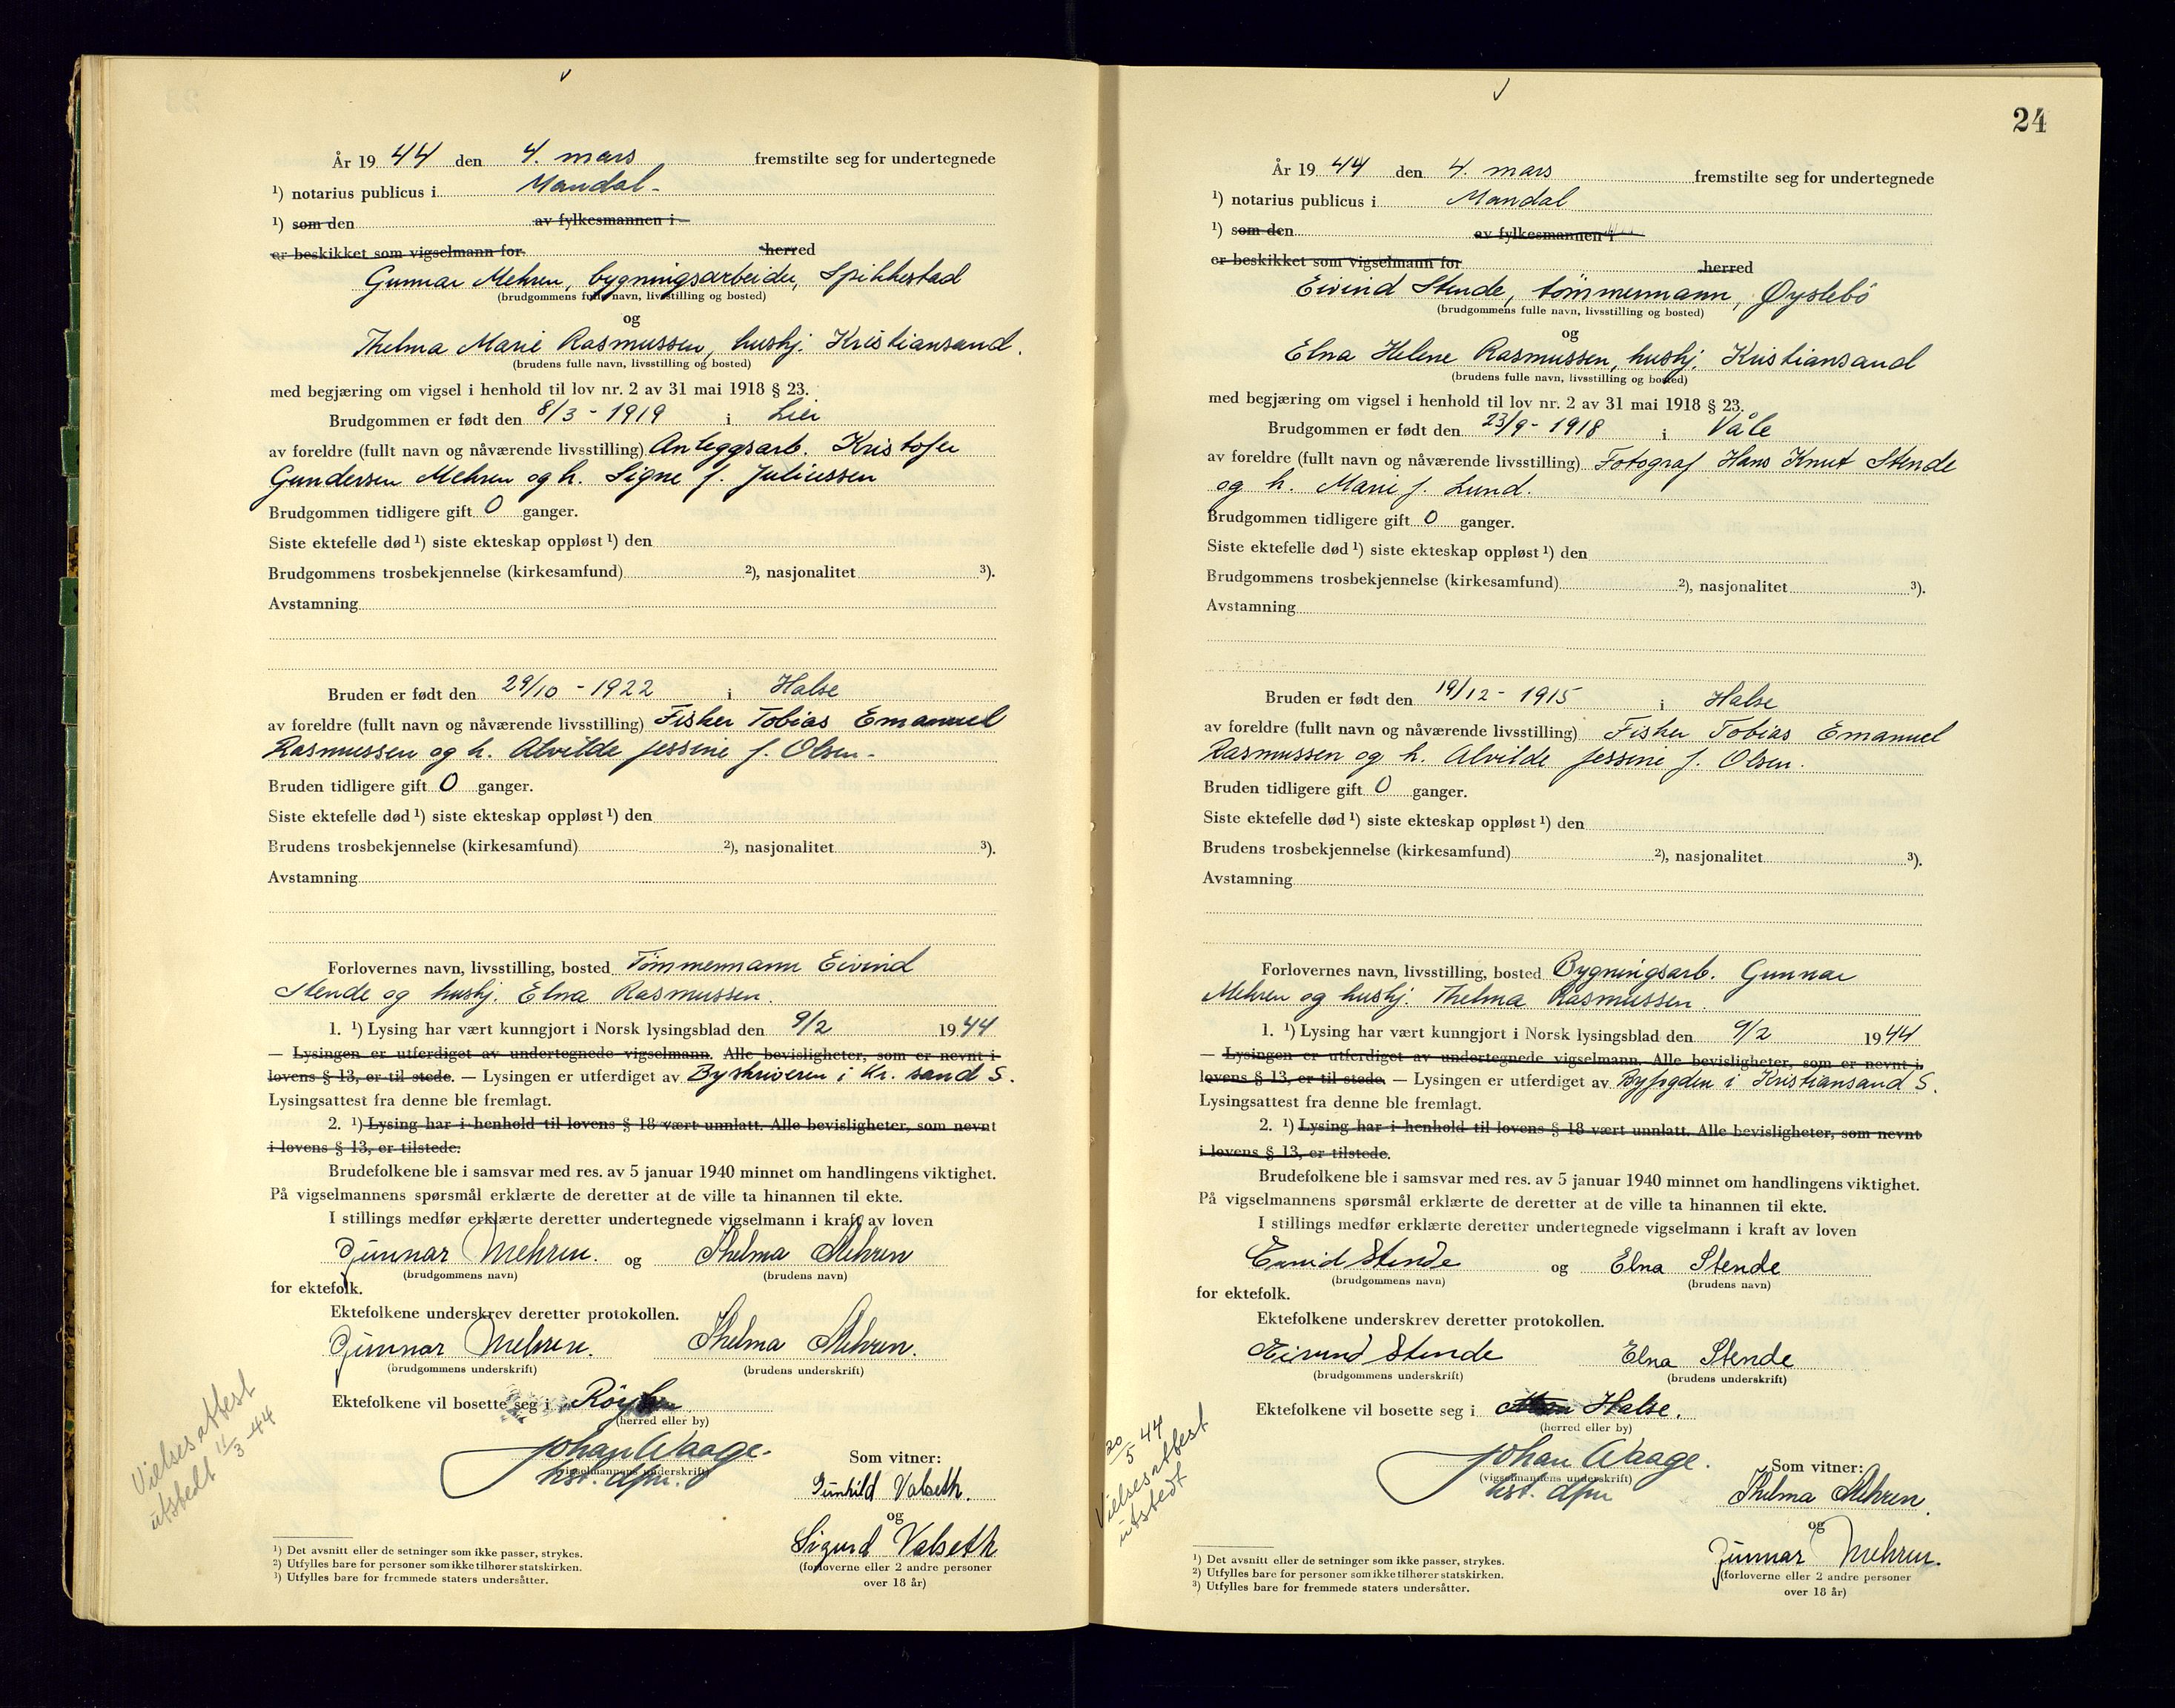 År 19 44 den 4. mars fremstilte seg for undertegnede
¹) notarius publicus i Mandal -
¹) som den av fylkesmannen i
er beskikket som vigselmann for herred
Gunnar Mehren, bygningsarbeider, Spikkestad
(brudgommens fulle navn, livsstilling og bosted)
og
Thelma Marie Rasmussen, hushj. Kristiansand.
(brudens fulle navn, livsstilling og bosted)
med begjæring om vigsel i henhold til lov nr. 2 av 31 mai 1918 § 23.
Brudgommen er født den 8/3 - 1919 i Lier
av foreldre (fullt navn og nåværende livsstilling) Anleggsarb. Kristofer
Gundersen Mehren og h. Signe f. Juliussen
Brudgommen tidligere gift 0 ganger.
Siste ektefelle død ¹) siste ekteskap oppløst ¹) den
Brudgommens trosbekjennelse (kirkesamfund) ²), nasjonalitet ³).
Avstamning
Bruden er født den 29/10 - 1922 i Halse
av foreldre (fullt navn og nåværende livsstilling) Fisker Tobias Emanuel
Rasmussen og h. Alvilde Jessine f. Olsen -
Bruden tidligere gift 0 ganger.
Siste ektefelle død ¹) siste ekteskap oppløst ¹) den
Brudens trosbekjennelse (kirkesamfund) ²), nasjonalitet ³).
Avstamning
Forlovernes navn, livsstilling, bosted Tömmermann Eivind
Stende og hushj. Elna Rasmussen.
1. ¹) Lysing har vært kunngjort i Norsk lysingsblad den 9/2 19 44
— Lysingen er utferdiget av undertegnede vigselmann. Alle bevisligheter, som er nevnt i
lovens § 13, er til stede. — Lysingen er utferdiget av Byskriveren i Kr. sand S.
Lysingsattest fra denne ble fremlagt.
2. ¹) Lysing har i henhold til lovens § 18 vært unnlatt. Alle bevisligheter, som nevnt
i lovens § 13, er tilstede.
Brudefolkene ble i samsvar med res. av 5 januar 1940 minnet om handlingens viktighet.
På vigselmannens spørsmål erklærte de deretter at de ville ta hinannen til ekte.
I stillings medfør erklærte deretter undertegnede vigselmann i kraft av loven
Gunnar Mehren. og Thelma Mehren
(brudgommens navn) (brudens navn)
for ektefolk.
Ektefolkene underskrev deretter protokollen.
Gunnar Mehren. Thelma Mehren.
(brudgommens underskrift) (brudens underskrift)
Ektefolkene vil bosette seg i Röyken
(herred eller by)
Johan Waage.
(vigselmannens underskrift)
kst. dfm.
Som vitner:
Gunhild Valseth.
og
Sigurd Valseth
(forloverne eller 2 andre personer
over 18 år)
Vielsesattest
utstedt 11/3-44
¹) Det avsnitt eller de setninger som ikke passer, strykes.
²) Utfylles bare for personer som ikke tilhører statskirken.
³) Utfylles bare for fremmede staters undersåtter.
24
År 19 44 den 4. mars fremstilte seg for undertegnede
¹) notarius publicus i Mandal
¹) som den av fylkesmannen i
er beskikket som vigselmann for herred
Eivind Stende, tömmermann, Øyslebö
(brudgommens fulle navn, livsstilling og bosted)
og
Elna Helene Rasmussen, hushj. Kristiansand
(brudens fulle navn, livsstilling og bosted)
med begjæring om vigsel i henhold til lov nr. 2 av 31 mai 1918 § 23.
Brudgommen er født den 23/9 - 1918 i Våle
av foreldre (fullt navn og nåværende livsstilling) Fotograf Hans Knut Stende
og h. Marie f. Lund.
Brudgommen tidligere gift 0 ganger.
Siste ektefelle død ¹) siste ekteskap oppløst ¹) den
Brudgommens trosbekjennelse (kirkesamfund) ²), nasjonalitet ³).
Avstamning
Bruden er født den 19/12 - 1915 i Halse
av foreldre (fullt navn og nåværende livsstilling) Fisker Tobias Emanuel
Rasmussen og h. Alvilde Jessine f. Olsen.
Bruden tidligere gift 0 ganger.
Siste ektefelle død ¹) siste ekteskap oppløst ¹) den
Brudens trosbekjennelse (kirkesamfund) ²), nasjonalitet ³).
Avstamning
Forlovernes navn, livsstilling, bosted Bygningsarb. Gunnar
Mehren og hushj. Thelma Rasmussen.
1. ¹) Lysing har vært kunngjort i Norsk lysingsblad den 9/2 19 44
— Lysingen er utferdiget av undertegnede vigselmann. Alle bevisligheter, som er nevnt i
lovens § 13, er til stede. — Lysingen er utferdiget av Byfogden i Kristiansand S.
Lysingsattest fra denne ble fremlagt.
2. ¹) Lysing har i henhold til lovens § 18 vært unnlatt. Alle bevisligheter, som nevnt
i lovens § 13, er tilstede.
Brudefolkene ble i samsvar med res. av 5 januar 1940 minnet om handlingens viktighet.
På vigselmannens spørsmål erklærte de deretter at de ville ta hinannen til ekte.
I stillings medfør erklærte deretter undertegnede vigselmann i kraft av loven
Eivind Stende og Elna Stende
(brudgommens navn) (brudens navn)
for ektefolk.
Ektefolkene underskrev deretter protokollen.
Eivind Stende Elna Stende
(brudgommens underskrift) (brudens underskrift)
Ektefolkene vil bosette seg i Halse.
(herred eller by)
Johan Waage.
(vigselmannens underskrift)
kst. dfm
Som vitner:
Thelma Mehren.
og
Gunnar Mehren.
(forloverne eller 2 andre personer
over 18 år)
20/5 44
Vielsesattest
utstedt
¹) Det avsnitt eller de setninger som ikke passer, strykes.
²) Utfylles bare for personer som ikke tilhører statskirken.
³) Utfylles bare for fremmede staters undersåtter.